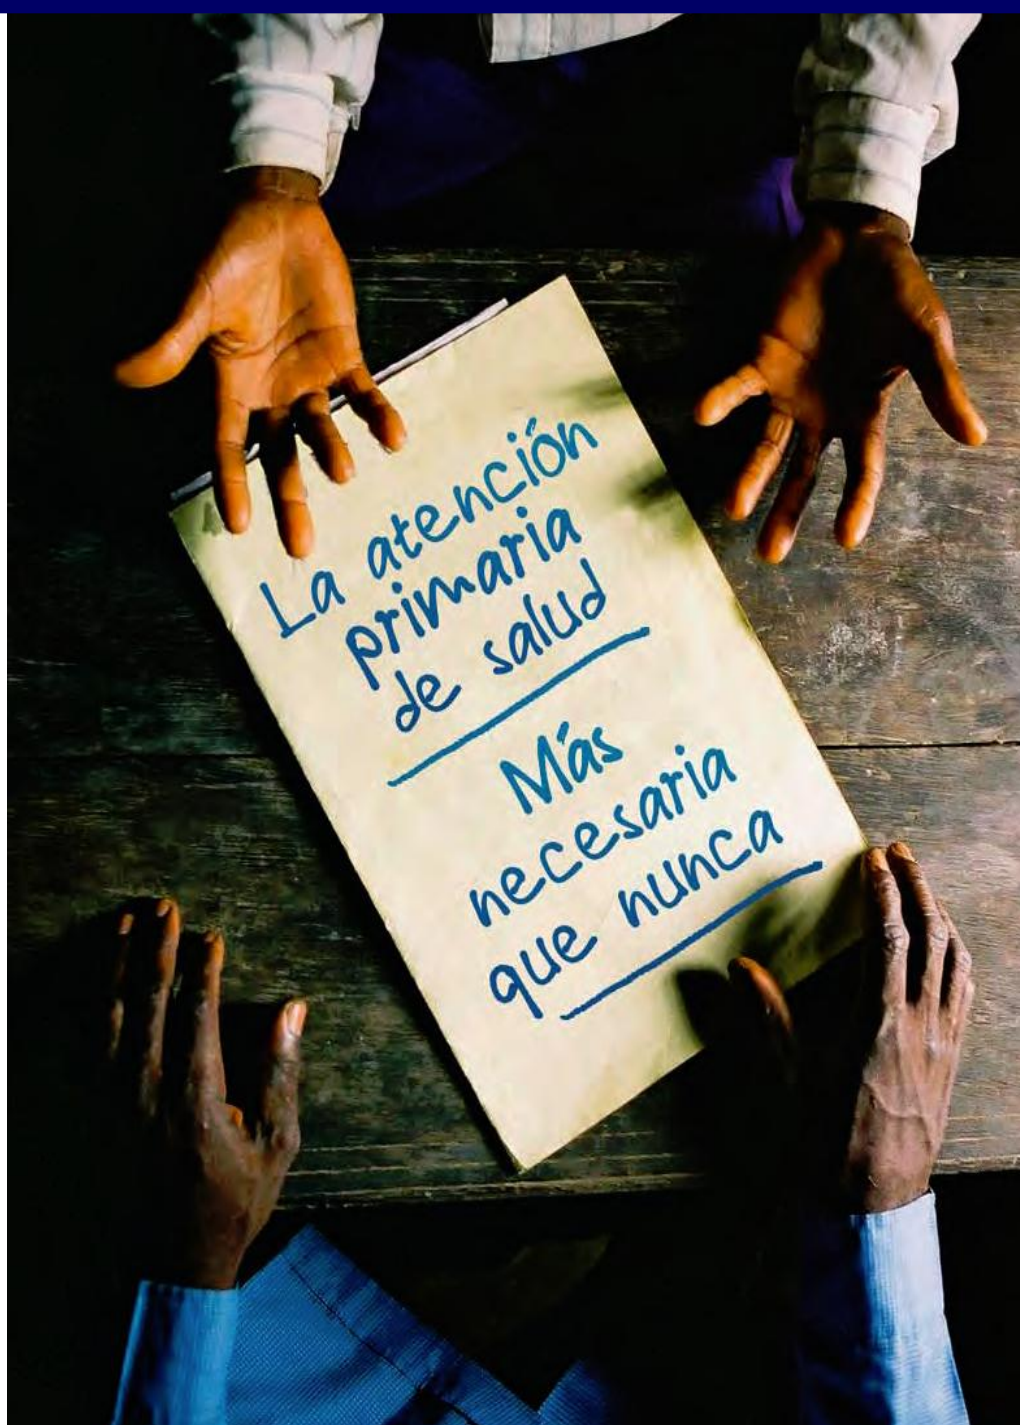 La atención
primaria
de salud
Más
necesaria
que nunca